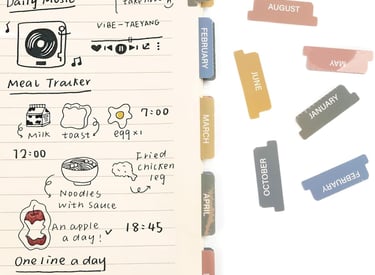 Daily Music
VIBE-TAEYANG
Meal Tracker
Milk
toast
egg x1
7:00
12:00
Noodles
with sauce
Fried
chicken
leg
An apple
a day!
18:45
One line a day
FEBRUARY
MARCH
APRIL
AUGUST
JUNE
MAY
JANUARY
OCTOBER
FEBRUARY